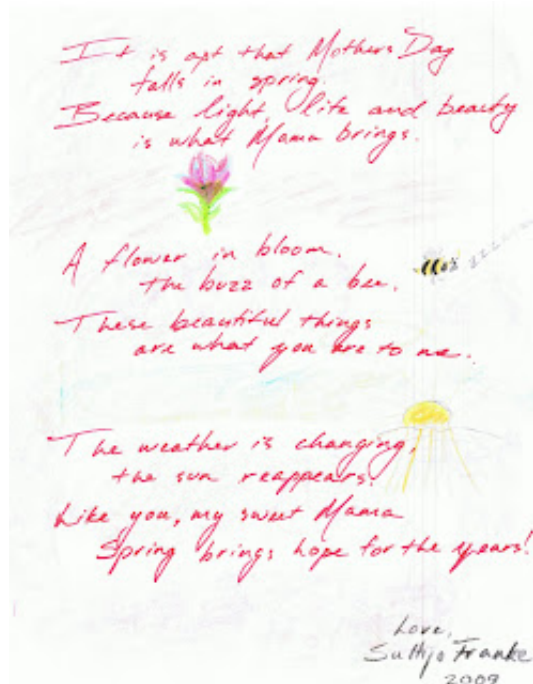 It is apt that Mothers Day
falls in spring.
Because light, life and beauty
is what Mama brings.
A flower in bloom,
the buzz of a bee,
These beautiful things
are what you are to me.
The weather is changing,
the sun reappears.
Like you, my sweet Mama
Spring brings hope for the years!
Love,
Franke
2009